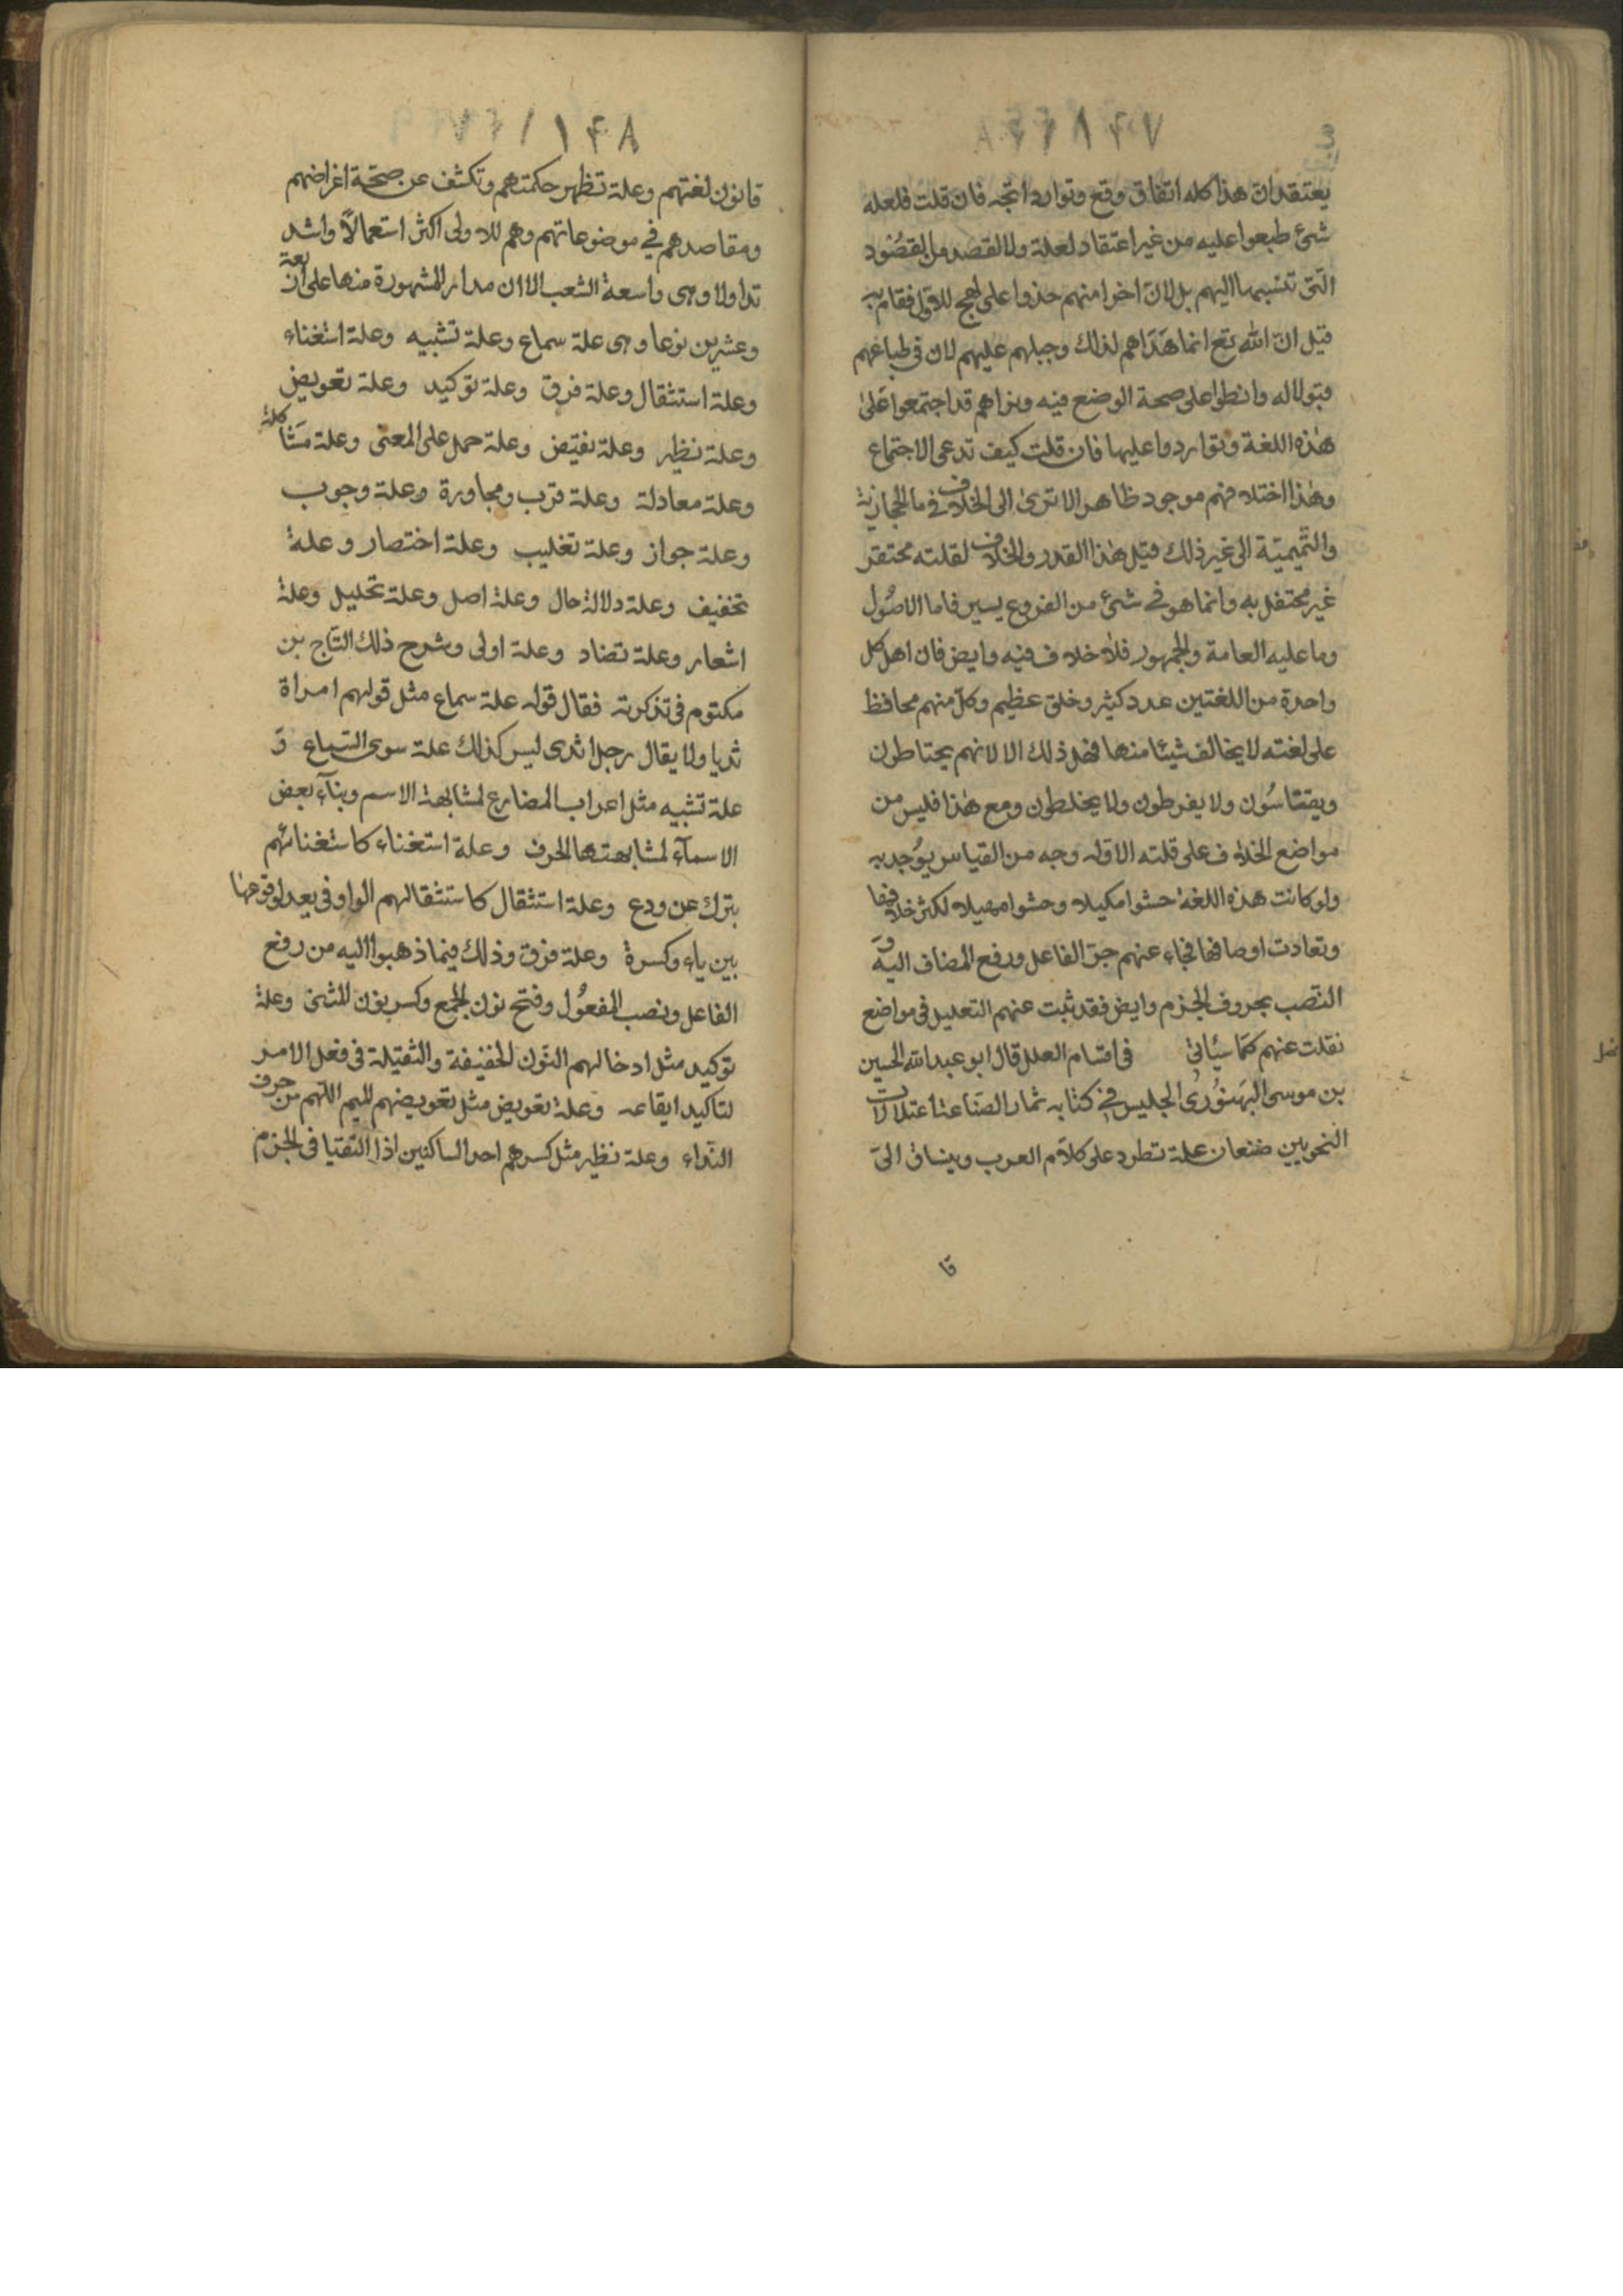 ١٤٧
يعتقد ان هذا كله اتفاق وقع وتوارد اتجه فان قلت فلعله
شئ طبعوا عليه من غير اعتقاد لعلة ولا لقصد من القصُود
التى تنسبها اليهم بل لان اخرا منهم حذوا على نهج الاول فقام به
قيل ان الله تع انما هَدَاهم لذلك وجبلهم عليهم لان فى طباعهم
قبولا له وانطوا على صحة الوضع فيه ونراهم قد اجتمعوا على
هذه اللغة وتواردوا عليها فان قلت كيف تدعى الاجتماع
وهذا اختلافهم موجود ظاهر الا ترى الى الخلاف فى ما الحجازية
والتميمية الى غير ذلك قيل هذا القدر والخلاف لقلته محتقر
غير محتفل به وانما هو فى شئ من الفروع يسير فاما الاصُول
وما عليه العامة والجمهور فلا خلاف فيه وايض فان اهل كل
واحدة من اللغتين عدد كثير وخلق عظيم وكل منهم محافظ
على لغته لا يخالف شيئا منها فهل ذلك الا لانهم يحتاطون
ويقتاسُون ولا يفرطون ولا يخلطون ومع هذا فليس من
مواضع الخلاف على قلته الا وله وجه من القياس يؤجد به
ولو كانت هذه اللغة حشوا مكيلا وحشوا مهيلا لكثر خلافها
وتعادت اوصافها فجاء عنهم جر الفاعل ورفع المضاف اليه و
النصب بحروف الجزم وايض فقد ثبت عنهم التعليل فى مواضع
نقلت عنهم كما سيأتى فى اقسام العلل قال ابو عبد الله الحسين
بن موسى الجليس فى كتابه ثمار الصناعة اعتلالات
النحويين ضنعان علة تطرد على كلام العرب وينساق الى
قا
١٤٨
قانون لغتهم وعلة تظهر حكمتهم وتكشف عن صحة اغراضهم
ومقاصدهم فى موضوعاتهم وهم للاولى اكثر استعمالًا واشد
تداولا وهى واسعة الشعب الا ان مدار المشهورة منها على اربعة
وعشرين نوعا وهى علة سماع وعلة تشبيه وعلة استغناء
وعلة استثقال وعلة فرق وعلة توكيد وعلة تعويض
وعلة نظير وعلة نقيض وعلة حمل على المعنى وعلة مشاكلة
وعلة معادلة وعلة قرب ومجاورة وعلة وجوب
وعلة جواز وعلة تغليب وعلة اختصار وعلة
تخفيف وعلة دلالة حال وعلة اصل وعلة تحليل وعلة
اشعار وعلة تضاد وعلة اولى وشرح ذلك التاج بن
مكتوم فى تذكرته فقال قوله علة سماع مثل قولهم امراة
ثديا ولا يقال رجل اثدى ليس كذلك علة سوى السماع و
علة تشبيه مثل اعراب المضارع لمشابهة الاسم وبنآء بعض
الاسمآء لمشابهتها الحرف وعلة استغناء كاستغنائهم
بترك عن ودع وعلة استثقال كاستثقالهم الواو فى يعد لوقوعها
بين ياء وكسرة وعلة فرق وذلك فيما ذهبوا اليه من رفع
الفاعل ونصب المفعُول وفتح نون الجمع وكسر نون المثنى وعلة
توكيد مثل ادخالهم النون الخفيفة والثقيلة فى فعل الامر
لتاكيد ايقاعه وعلة تعويض مثل تعويضهم الميم اللهم من حرف
النداء وعلة نظير مثل كسرهم احد الساكنين اذا التقيا فى الجزم